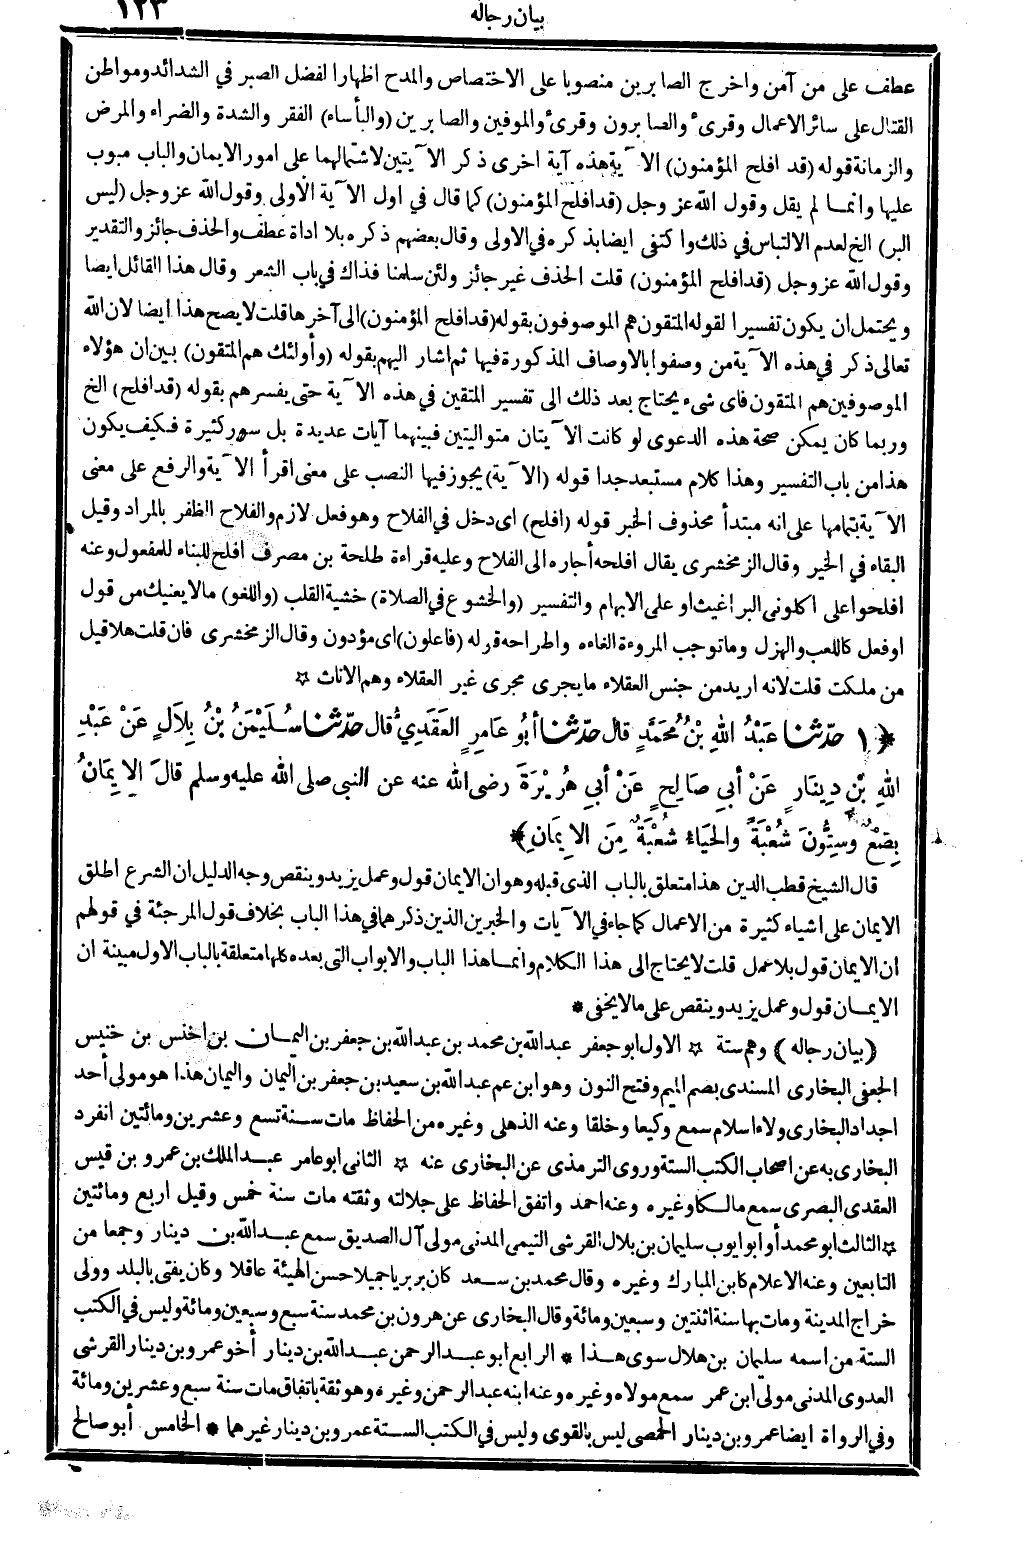 ١٢٣
بيان رجاله
عطف على من آمن واخرج الصابرين منصوبا على الاختصاص والمدح اظهارا لفضل الصبر في الشدائد ومواطن
القتال على سائر الاعمال وقرىء والصابرون وقرىء والموفين والصابرين (والبأساء) الفقر والشدة والضراء والمرض
والزمانة قوله (قد افلح المؤمنون) الآية هذه آية اخرى ذكر الآيتين لاشتمالهما على امور الايمان والباب مبوب
عليها وانما لم يقل وقول الله عز وجل (قد افلح المؤمنون) كما قال في اول الآية الأولى وقول الله عز وجل (ليس
البر) الخ لعدم الالتباس في ذلك واكتفى ايضا بذكره في الاولى وقال بعضهم ذكره بلا اداة عطف والحذف جائز والتقدير
وقول الله عز وجل (قد افلح المؤمنون) قلت الحذف غير جائز ولئن سلمنا فذاك في باب الشعر وقال هذا القائل ايضا
ويحتمل ان يكون تفسيرا لقوله المتقون هم الموصوفون بقوله (قد افلح المؤمنون) الى آخرها قلت لا يصح هذا ايضا لان الله
تعالى ذكر في هذه الآية من وصفوا بالاوصاف المذكورة فيها ثم اشار اليهم بقوله (وأولئك هم المتقون) بين ان هؤلاء
الموصوفين هم المتقون فاى شىء يحتاج بعد ذلك الى تفسير المتقين في هذه الآية حتى يفسرهم بقوله (قد افلح) الخ
وربما كان يمكن صحة هذه الدعوى لو كانت الآيتان متواليتين فبينهما آيات عديدة بل سور كثيرة فكيف يكون
هذا من باب التفسير وهذا كلام مستبعد جدا قوله (الآية) يجوز فيها النصب على معنى اقرأ الآية والرفع على معنى
الآية بتمامها على انه مبتدأ محذوف الخبر قوله (افلح) اى دخل في الفلاح وهو فعل لازم والفلاح الظفر بالمراد وقيل
البقاء في الخير وقال الزمخشرى يقال افلحه أجاره الى الفلاح وعليه قراءة طلحة بن مصرف افلح للبناء للمفعول وعنه
افلحوا على اكلونى البراغيث او على الابهام والتفسير (والخشوع في الصلاة) خشية القلب (واللغو) ما لا يعنيك من قول
اوفعل كاللعب والهزل وما توجب المروءة الغاءه واطراحه قوله (فاعلون) اى مؤدون وقال الزمخشرى فان قلت هلا قيل
من ملكت قلت لانه اريد من جنس العقلاء ما يجرى مجرى غير العقلاء وهم الاناث ☆
﴿١ حَدّثنا عَبْدُ اللهِ بْنُ مُحَمَّدٍ قال حَدّثنا أبُو عَامِرٍ العَقَدِيُّ قال حَدّثنا سُلَيْمٰنُ بْنُ بِلاَلٍ عَنْ عَبْدِ
اللهِ بْنِ دِينَارٍ عَنْ أبِي صَالِحٍ عَنْ أبِي هُرَيْرَةَ رضى الله عنه عن النبى صلى الله عليه وسلم قالَ الإِيمَانُ
بِضْعٌ وَسِتُّونَ شُعْبَةً والحَيَاءُ شُعْبَةٌ مِنَ الإِيمَانِ﴾
قال الشيخ قطب الدين هذا متعلق بالباب الذى قبله وهو ان الايمان قول وعمل يزيد وينقص وجه الدليل ان الشرع اطلق
الايمان على اشياء كثيرة من الاعمال كما جاء في الآيات والخبرين الذين ذكرهما في هذا الباب بخلاف قول المرجئة في قولهم
ان الايمان قول بلا عمل قلت لا يحتاج الى هذا الكلام وانما هذا الباب والابواب التى بعده كلها متعلقة بالباب الاول مبينة ان
الايمان قول وعمل يزيد وينقص على ما لا يخفى *
(بيان رجاله) وهم ستة ☆ الاول ابو جعفر عبد الله بن محمد بن عبد الله بن جعفر بن اليمان بن اخنس بن خنيس
الجعفى البخارى المسندى بضم الميم وفتح النون وهو ابن عم عبد الله بن سعيد بن جعفر بن اليمان واليمان هذا هو مولى أحد
اجداد البخارى ولاء اسلام سمع وكيعا وخلقا وعنه الذهلى وغيره من الحفاظ مات سنة تسع وعشرين ومائتين انفرد
البخارى به عن اصحاب الكتب الستة وروى الترمذى عن البخارى عنه ☆ الثانى ابو عامر عبد الملك بن عمرو بن قيس
العقدى البصرى سمع مالكا وغيره وعنه احمد واتفق الحفاظ على جلالته وثقته مات سنة خمس وقيل اربع ومائتين
☆ الثالث ابو محمد أو ابو ايوب سليمان بن بلال القرشى التيمى المدنى مولى آل الصديق سمع عبد الله بن دينار وجمعا من
التابعين وعنه الاعلام كابن المبارك وغيره وقال محمد بن سعد كان بربريا جميلا حسن الهيئة عاقلا وكان يفتى بالبلد وولى
خراج المدينة ومات بها سنة اثنتين وسبعين ومائة وقال البخارى عن هرون بن محمد سنة سبع وسبعين ومائة وليس في الكتب
الستة من اسمه سليمان بن هلال سوى هذا * الرابع ابو عبد الرحمن عبد الله بن دينار أخو عمرو بن دينار القرشى
العدوى المدنى مولى ابن عمر سمع مولاه وغيره وعنه ابنه عبد الرحمن وغيره وهو ثقة باتفاق مات سنة سبع وعشرين ومائة
وفي الرواة ايضا عمرو بن دينار الحمصى ليس بالقوى وليس في الكتب الستة عمرو بن دينار غيرهما * الخامس أبو صالح